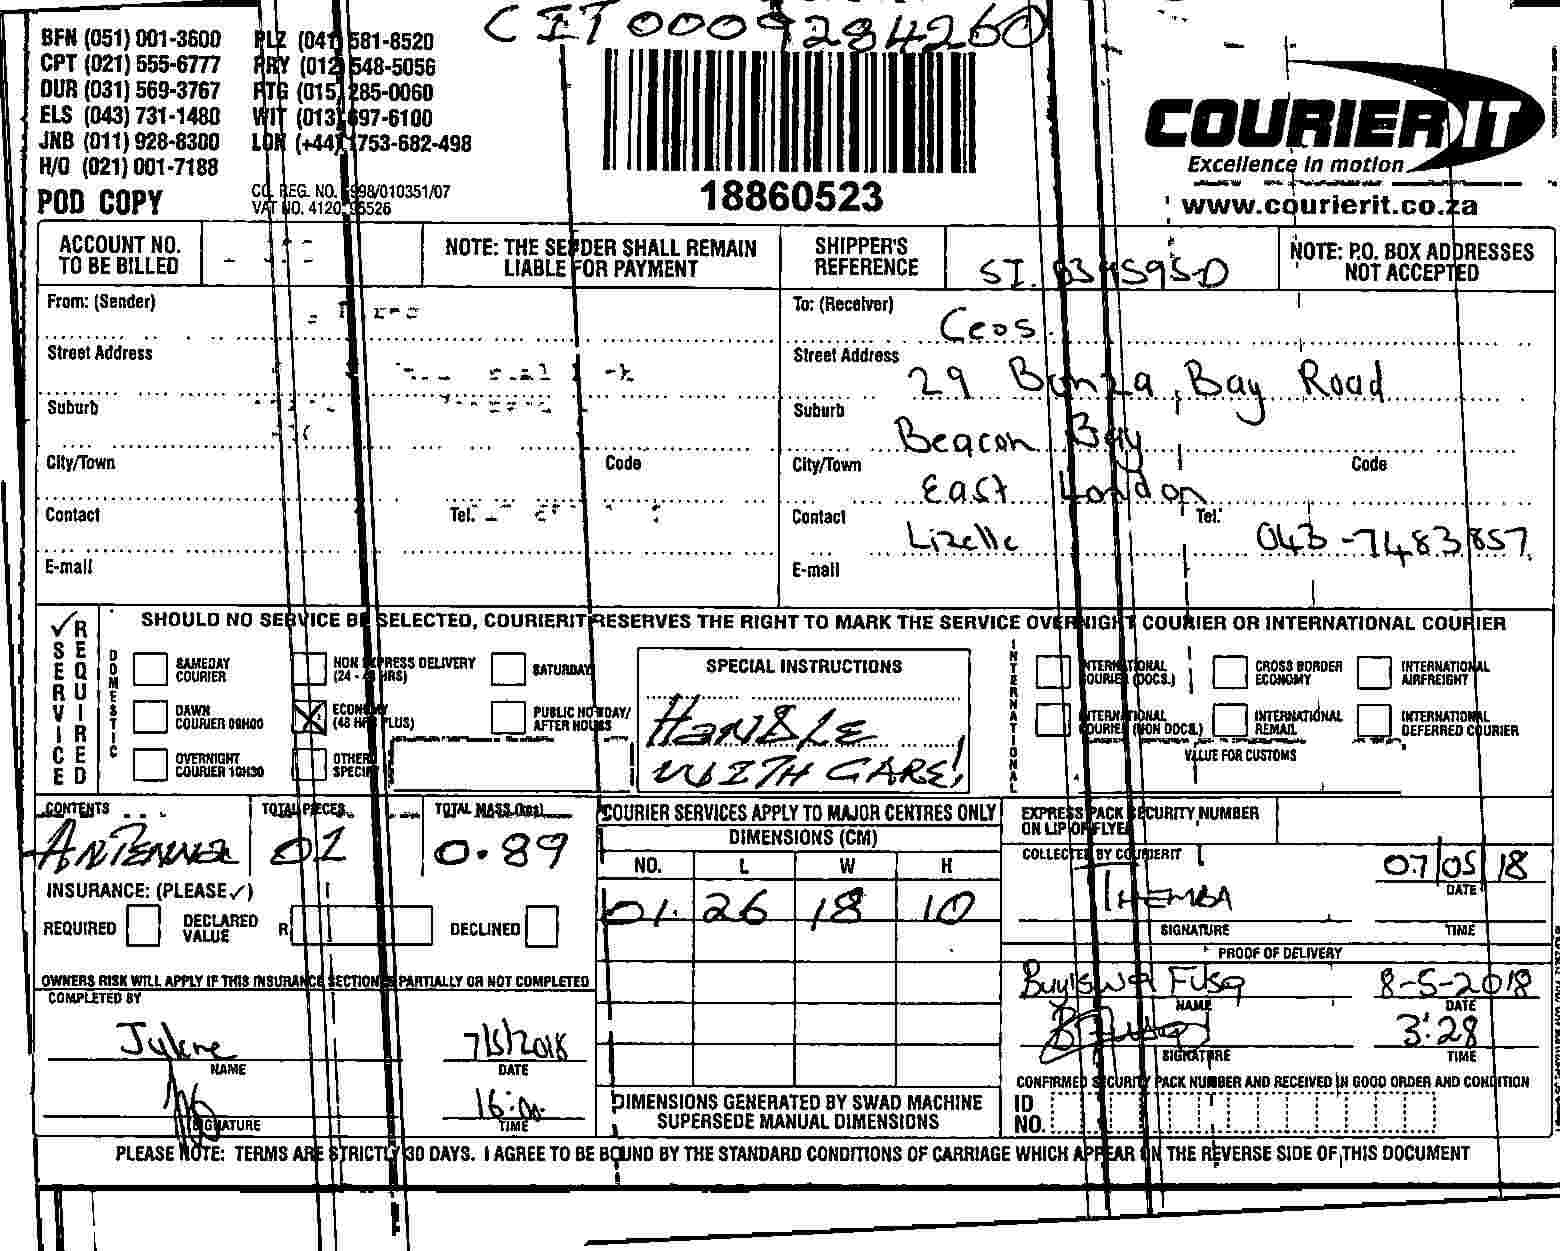 CIT0009284260
BFN (051) 001-3600 PLZ (041) 581-8520
CPT (021) 555-6777 PRY (012) 548-5056
DUR (031) 569-3767 PTG (015) 285-0060
ELS (043) 731-1480 WIT (013) 697-6100
JNB (011) 928-8300 LON (+44) 1753-682-498
H/O (021) 001-7188
POD COPY
CO. REG. NO. 1998/010351/07
VAT NO. 4120
18860523
COURIER IT
Excellence in motion
www.courierit.co.za
ACCOUNT NO. TO BE BILLED
NOTE: THE SENDER SHALL REMAIN LIABLE FOR PAYMENT
SHIPPER'S REFERENCE
NOTE: P.O. BOX ADDRESSES NOT ACCEPTED
From: (Sender)
Street Address
Suburb
City/Town Code
Contact Tel.
E-mail
To: (Receiver) Ceos.
Street Address 29 Bonza Bay Road
Suburb Beacon Bay
City/Town East London Code
Contact Lizelle Tel: 043-7483857
E-mail
✓ SERVICE REQUIRED
SHOULD NO SERVICE BE SELECTED, COURIERIT RESERVES THE RIGHT TO MARK THE SERVICE OVERNIGHT COURIER OR INTERNATIONAL COURIER
DOMESTIC
SAMEDAY COURIER
NON EXPRESS DELIVERY (24 - 48 HRS)
SATURDAY
DAWN COURIER 09H00
ECONOMY (48 HRS PLUS)
PUBLIC HOLIDAY/ AFTER HOURS
OVERNIGHT COURIER 10H30
OTHER SPECIFY
SPECIAL INSTRUCTIONS
HANDLE
WITH CARE!
INTERNATIONAL
INTERNATIONAL COURIER (DOCS.)
CROSS BORDER ECONOMY
INTERNATIONAL AIRFREIGHT
INTERNATIONAL COURIER (NON DOCS.)
INTERNATIONAL REMAIL
INTERNATIONAL DEFERRED COURIER
VALUE FOR CUSTOMS
CONTENTS
TOTAL PIECES 01
TOTAL MASS (kgs) 0.89
INSURANCE: (PLEASE ✓)
REQUIRED DECLARED VALUE R DECLINED
OWNERS RISK WILL APPLY IF THIS INSURANCE SECTION IS PARTIALLY OR NOT COMPLETED
COMPLETED BY
7/5/2018
NAME DATE
16:00
SIGNATURE TIME
COURIER SERVICES APPLY TO MAJOR CENTRES ONLY
DIMENSIONS (CM)
NO. L W H
01. 26 18 10
DIMENSIONS GENERATED BY SWAD MACHINE SUPERSEDE MANUAL DIMENSIONS
EXPRESS PACK SECURITY NUMBER ON LIP OF FLYER
COLLECTED BY COURIERIT 07/05/18
DATE
THEMBA
SIGNATURE TIME
PROOF OF DELIVERY
Buyiswa Fusa 8-5-2018
NAME DATE
3:28
SIGNATURE TIME
CONFIRMED SECURITY PACK NUMBER AND RECEIVED IN GOOD ORDER AND CONDITION
ID NO.
PLEASE NOTE: TERMS ARE STRICTLY 30 DAYS. I AGREE TO BE BOUND BY THE STANDARD CONDITIONS OF CARRIAGE WHICH APPEAR ON THE REVERSE SIDE OF THIS DOCUMENT